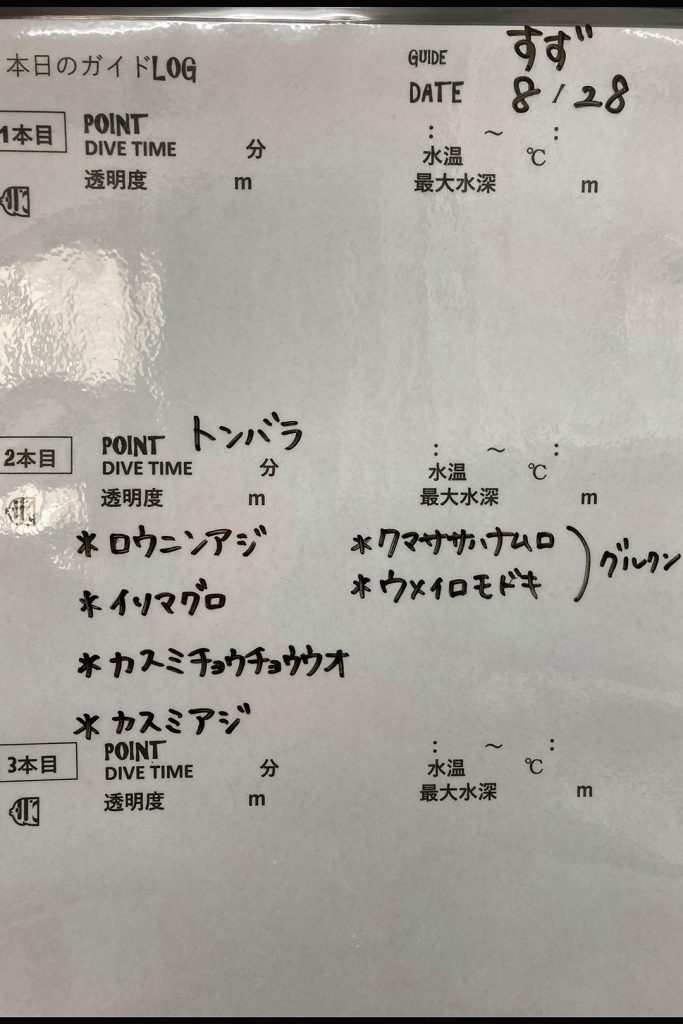 本日のガイドLOG
GUIDE すず
DATE 8/28
1本目 POINT : ～ :
DIVE TIME 分 水温 ℃
透明度 m 最大水深 m
2本目 POINT トンバラ : ～ :
DIVE TIME 分 水温 ℃
透明度 m 最大水深 m
*ロウニンアジ *クマササハナムロ
*イソマグロ *ウメイロモドキ ) グルクン
*カスミチョウチョウウオ
*カスミアジ
3本目 POINT : ～ :
DIVE TIME 分 水温 ℃
透明度 m 最大水深 m